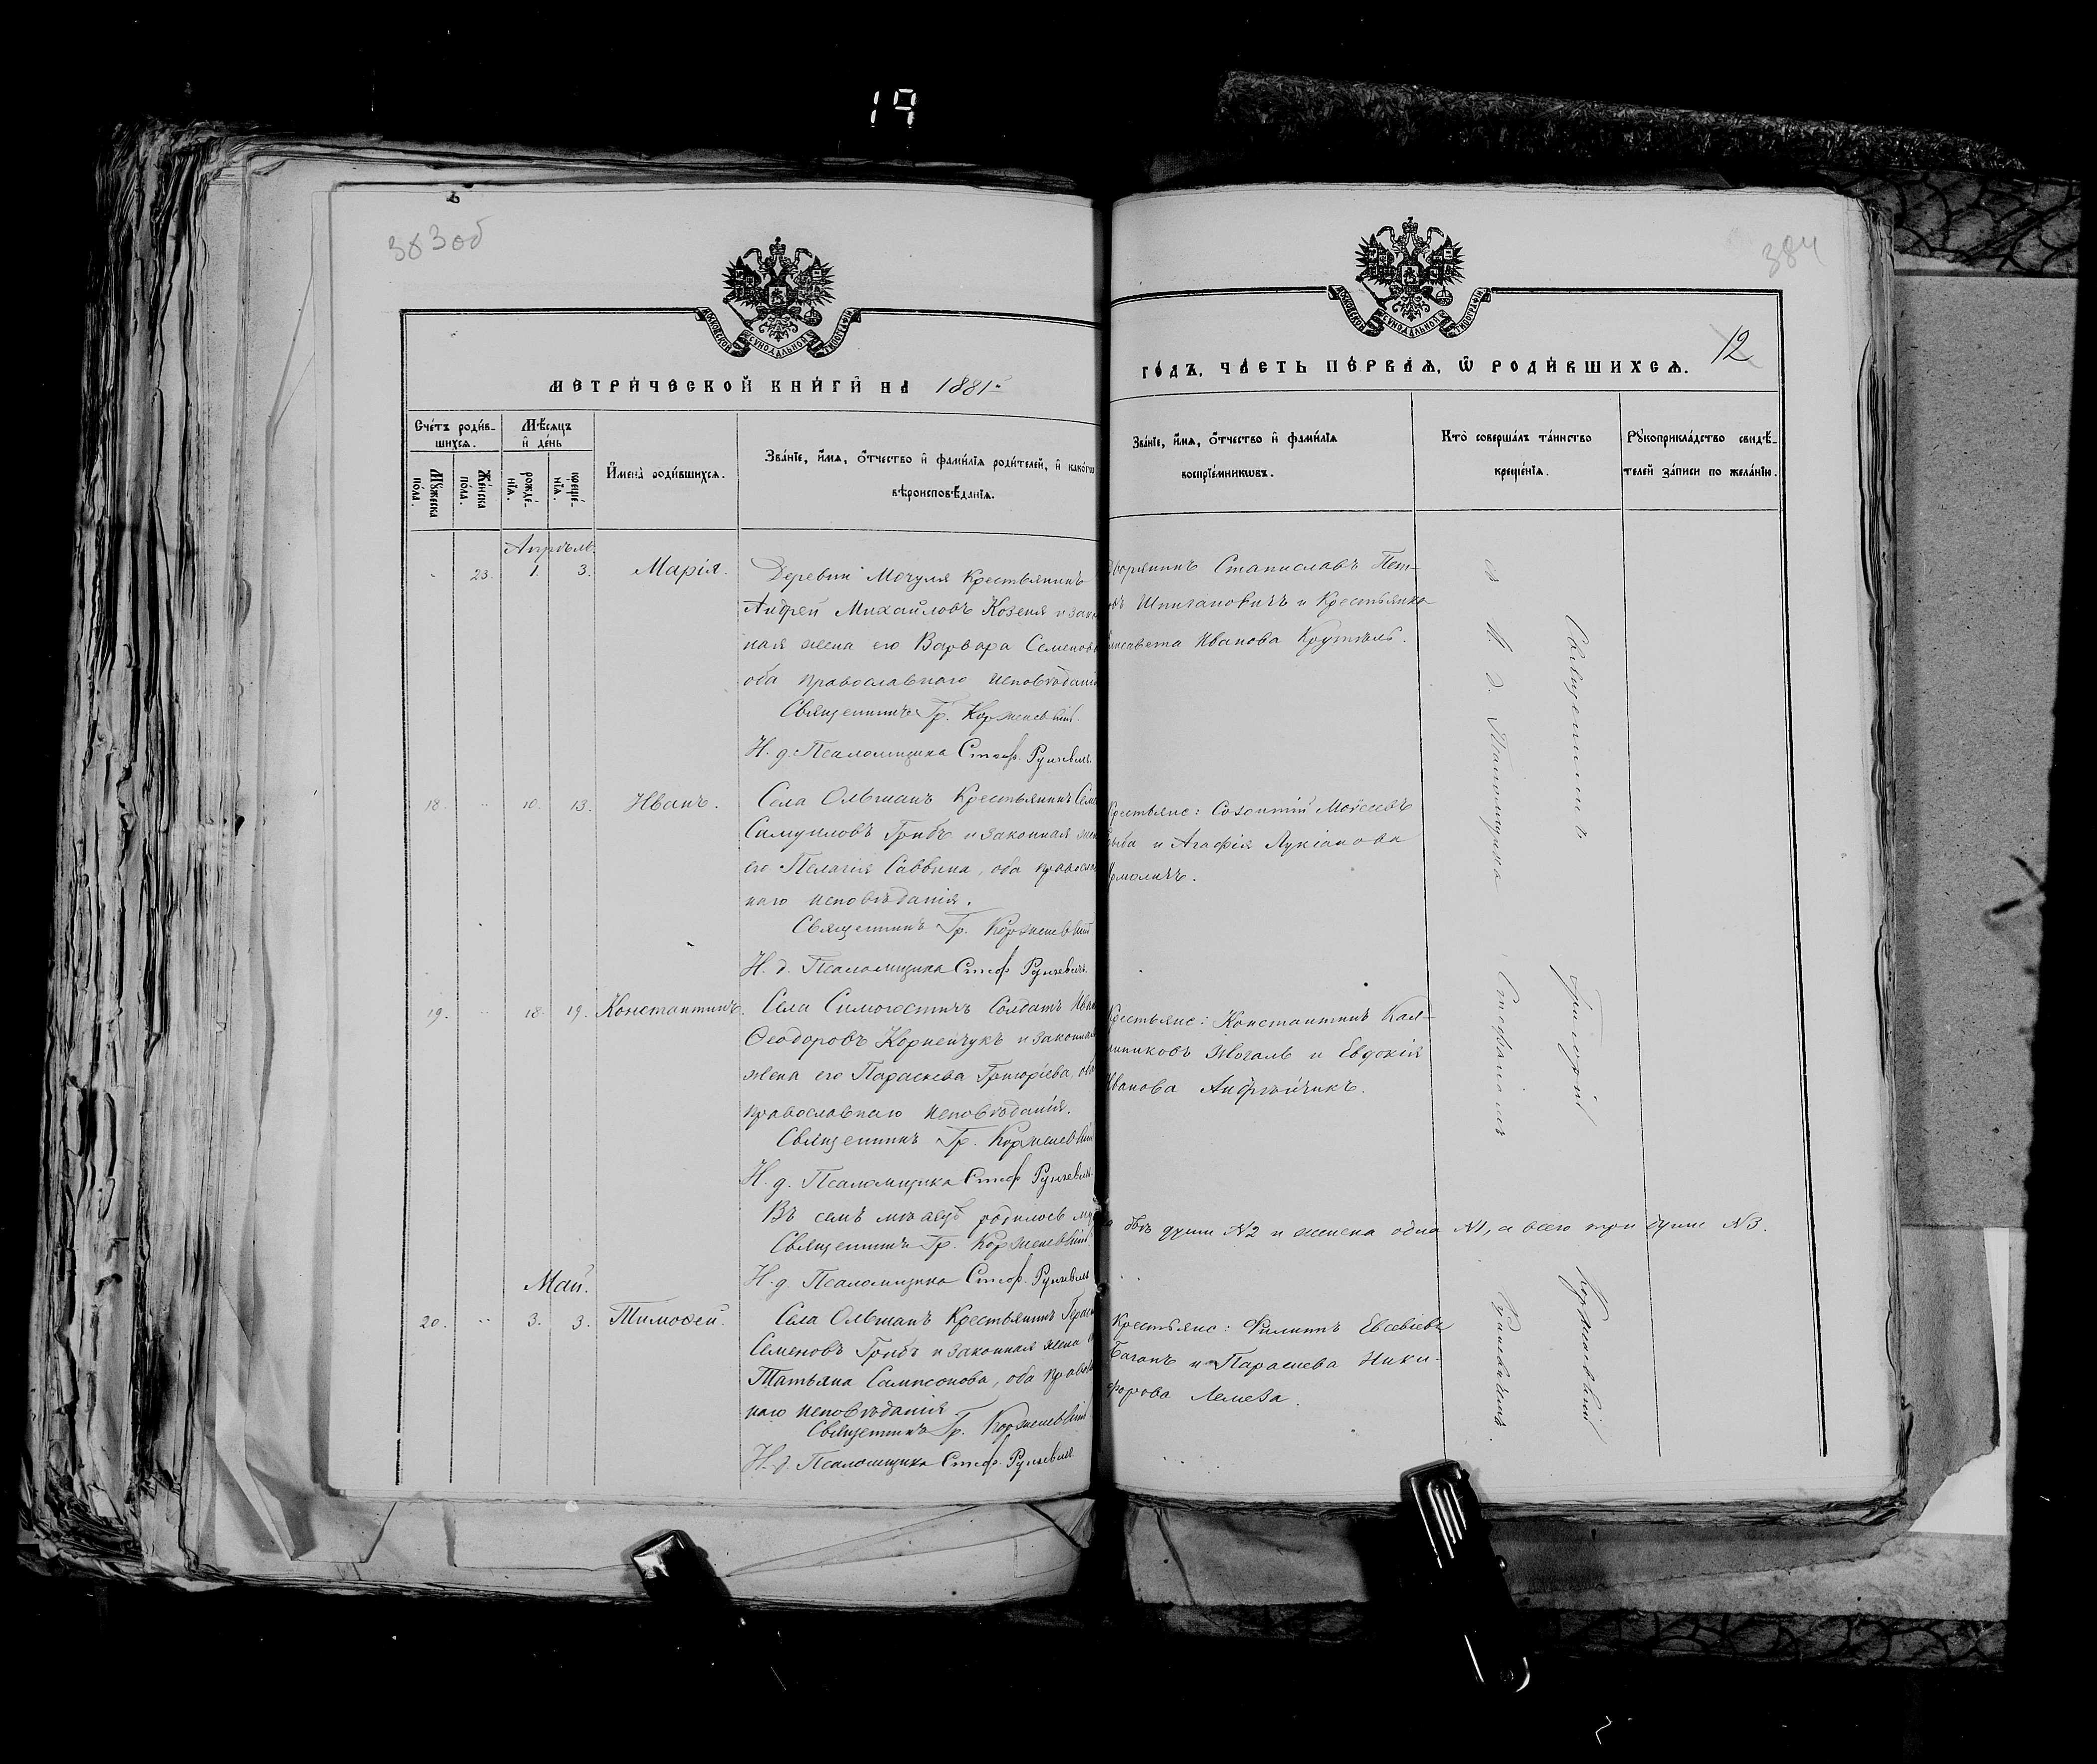 19
383об
384
12
МОСКОВСКОЙ СѴНОДАЛЬНОЙ ТИПОГРАФІИ
МОСКОВСКОЙ СѴНОДАЛЬНОЙ ТИПОГРАФІИ
МЕТРИ́ЧЕСКОЙ КНИ́ГИ НА 1881
ГО́ДЪ, ЧА́СТЬ ПЕ́РВАѦ, Ѡ РОДИ́ВШИХСѦ.
Сче́тъ роди́в-
шихсѧ.
Мꙋ́жеска по́ла.
Же́нска по́ла.
Мѣ́сѧцъ и҆ де́нь
рожде́-нїѧ.
креще́-нїѧ.
И҆мена̀ роди́вшихсѧ.
Зва́нїе, и҆́мѧ, ѻ҆́тчество и҆ фамі́лїѧ роди́телей, и҆ како́гѡ
вѣроисповѣ́данїѧ.
Зва́нїе, и҆́мѧ, ѻ҆́тчество и҆ фамі́лїѧ
воспрїе́мникѡвъ.
Кто̀ соверша́лъ та́инство
креще́нїѧ.
Рꙋкоприкла́дство свидѣ́-
телей за́писи по жела́нїю.
Апрѣль
23. 1. 3. Марія.
Деревни Мочуля Крестьянинъ
Андрей Михайловъ Козеня и зако
ная жена его Варвара Семенов
оба православнаго исповѣдані
Священникъ Гр. Корженевскій.
И. д. Псаломщика Стеф. Рункевичъ.
дворянинъ Станиславъ Пет-
овъ Шпигановичъ и Крестьянка
лисавета Иванова Крутель.
18. 10. 13. Иванъ.
Села Ольманъ Крестьянинъ Сем
Самуиловъ Грибъ и законная жен
его Пелагія Саввина, оба правосла
наго исповѣданія.
Священникъ Гр. Корженевскій
И. д. Псаломщика Стеф. Рункевичъ.
Крестьяне: Созонтій Моисеевъ
и Агафія Лукіанова
рмоличъ.
19. 18. 19. Константинъ.
Села Симоностичъ Солдатъ Иван
Ѳеодоровъ Корнейчукъ и законная
жена его Параскева Григорьева, оба
православнаго исповѣданія.
Священникъ Гр. Корженевскій
И. д. Псаломщика Стеф Рункевичъ.
Крестьяне: Константинъ Кал-
линиковъ Жогаль и Евдокія
Иванова Андрейчикъ.
Въ семъ мѣсяцѣ родилось му
двѣ души №2 и женска одна №1, а всего три души №3.
Священникъ Гр. Корженевскій.
И. д. Псаломщика Стеф. Рункевичъ
Май.
20. 3. 3. Тимоѳей.
Села Ольманъ Крестьянинъ Герас
Семеновъ Грибъ и законная жена е
Татьяна Сампсонова, оба правосла
наго исповѣданія.
Священникъ Гр. Корженевскій
И. д. Псаломщика Стеф. Рункевичъ
Крестьяне: Филиппъ Евсевіевъ
Баганъ и Параскева Ники-
форова Лемеза.
Священникъ Григорій Корженевскій
съ И. д. Псаломщика Стефаномъ Рункевичемъ.